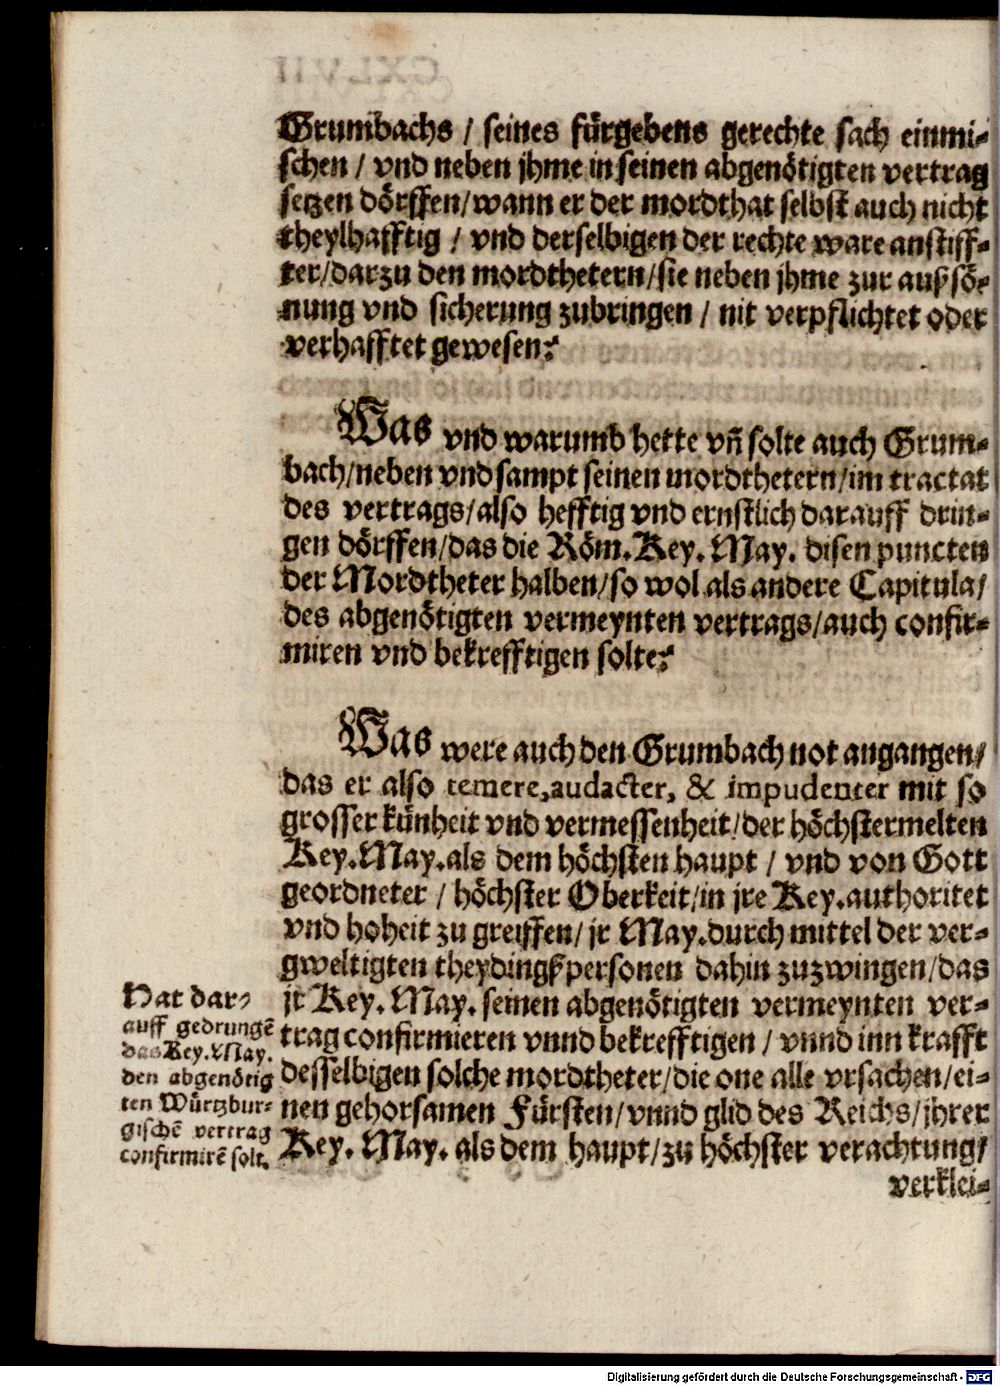 Grumbachs / seines fürgebens gerechte sach einmi-
schen / vnd neben jhme in seinen abgenötigten vertrag
setzen dörffen/wann er der mordthat selbst auch nicht
theylhafftig / vnd derselbigen der rechte ware anstiff-
ter/darzu den mordthetern/sie neben jhme zur außsö-
nung vnd sicherung zubringen / nit verpflichtet oder
verhafftet gewesen?
Was vnd warumb hette vñ solte auch Grum-
bach/neben vnd sampt seinen mordthetern/im tractat
des vertrags/also hefftig vnd ernstlich darauff drin-
gen dörffen/das die Röm.Key.May. disen puncten
der Mordtheter halben/so wol als andere Capitula/
des abgenötigten vermeynten vertrags/auch confir-
miren vnd bekrefftigen solte?
Was were auch den Grumbach not angangen/
das er also temere,audacter, & impudenter mit so
grosser künheit vnd vermessenheit/der höchstermelten
Key.May.als dem höchsten haupt / vnd von Gott
geordneter / höchster Oberkeit/in jre Key.authoritet
vnd hoheit zu greiffen/ jr May.durch mittel der ver-
gweltigten theydingßpersonen dahin zuzwingen/das
jr Key. May. seinen abgenötigten vermeynten ver-
trag confirmieren vnnd bekrefftigen / vnnd inn krafft
desselbigen solche mordtheter/die one alle vrsachen/ei-
nen gehorsamen Fürsten/vnnd glid des Reichs/jhrer
Key. May. als dem haupt/zu höchster verachtung/
verklei-
Hat dar-
auff gedrungẽ
das Key.May.
den abgenötig
ten Würtzbur-
gischẽ vertrag
confirmirẽ solt.
Digitalisierung gefördert durch die Deutsche Forschungsgemeinschaft - DFG